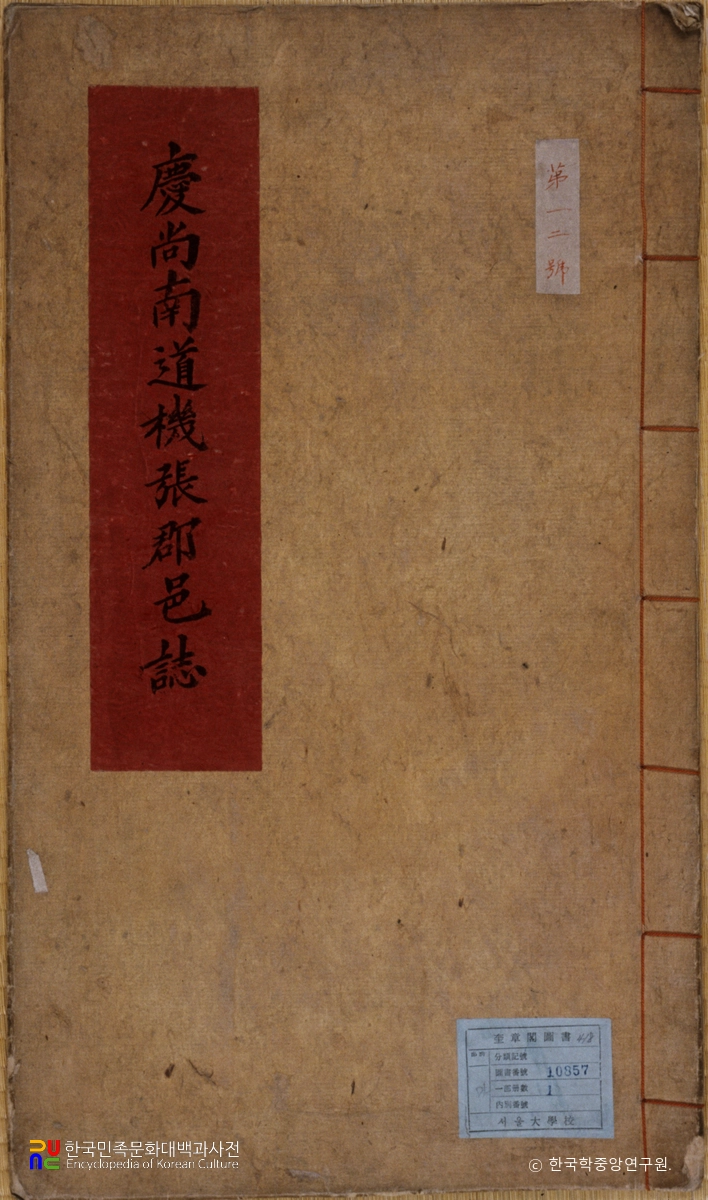 慶尚南道機張郡邑誌
第一二號
奎章閣圖書
分類記號
圖書番號 10857
一部冊數 1
內別番號
서울大學校
한국민족문화대백과사전
Encyclopedia of Korean Culture
© 한국학중앙연구원.